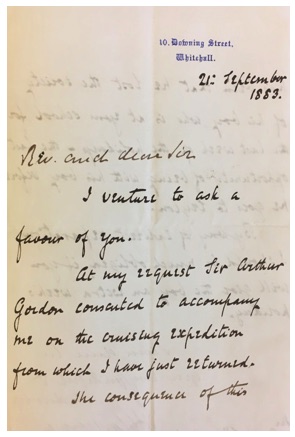 10, Downing Street,
Whitehall.
21st September
1883.
Rev. and dear Sir
I venture to ask a
favour of you.
At my request Sir Arthur
Gordon consented to accompany
me on the cruising expedition
from which I have just returned.
The consequence of this